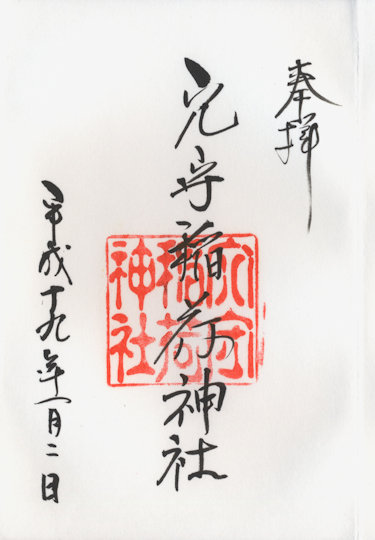 奉拝
穴守稲荷神社
穴守
稲荷
神社
平成十九年一月二日